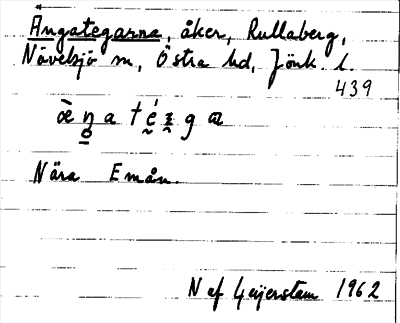 Angategarna, åker, Rullaberg,
Nävelsjö m, Östra hd, Jönk. l.
439
Nära Emån.
N af Geijerstam 1962